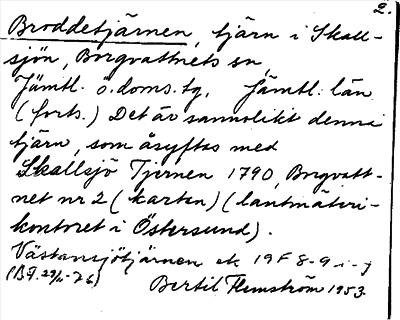 2.
Broddetjärnen, tjärn i Skall-
sjön, Borgvattnets sn,
Jämtl. ö. doms. tg. Jämtl. län
(forts.) Det är sannolikt denna
tjärn, som åsyftas med
Skallsjö Tjernen 1790, Borgvatt-
net nr 2 (kartan) (lantmäteri-
kontoret i Östersund).
Västansjötjärnen ek 19F 8-9 i-j
Bertil Flemström 1953.